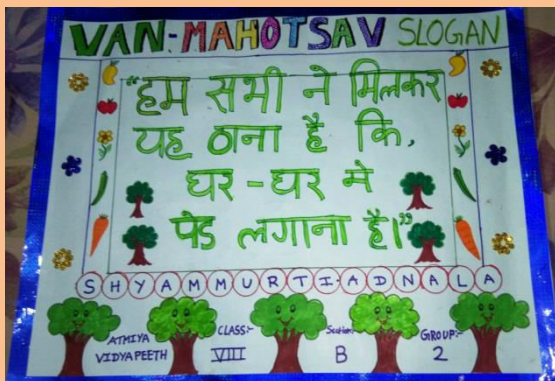 VAN-MAHOTSAV SLOGAN
"हम सभी ने मिलकर
यह ठाना है कि,
घर-घर मे
पेड लगाना है।"
SHYAMMURTIADNALA
ATMIYA VIDYAPEETH
CLASS:- VIII
Section:- B
GROUP:- 2